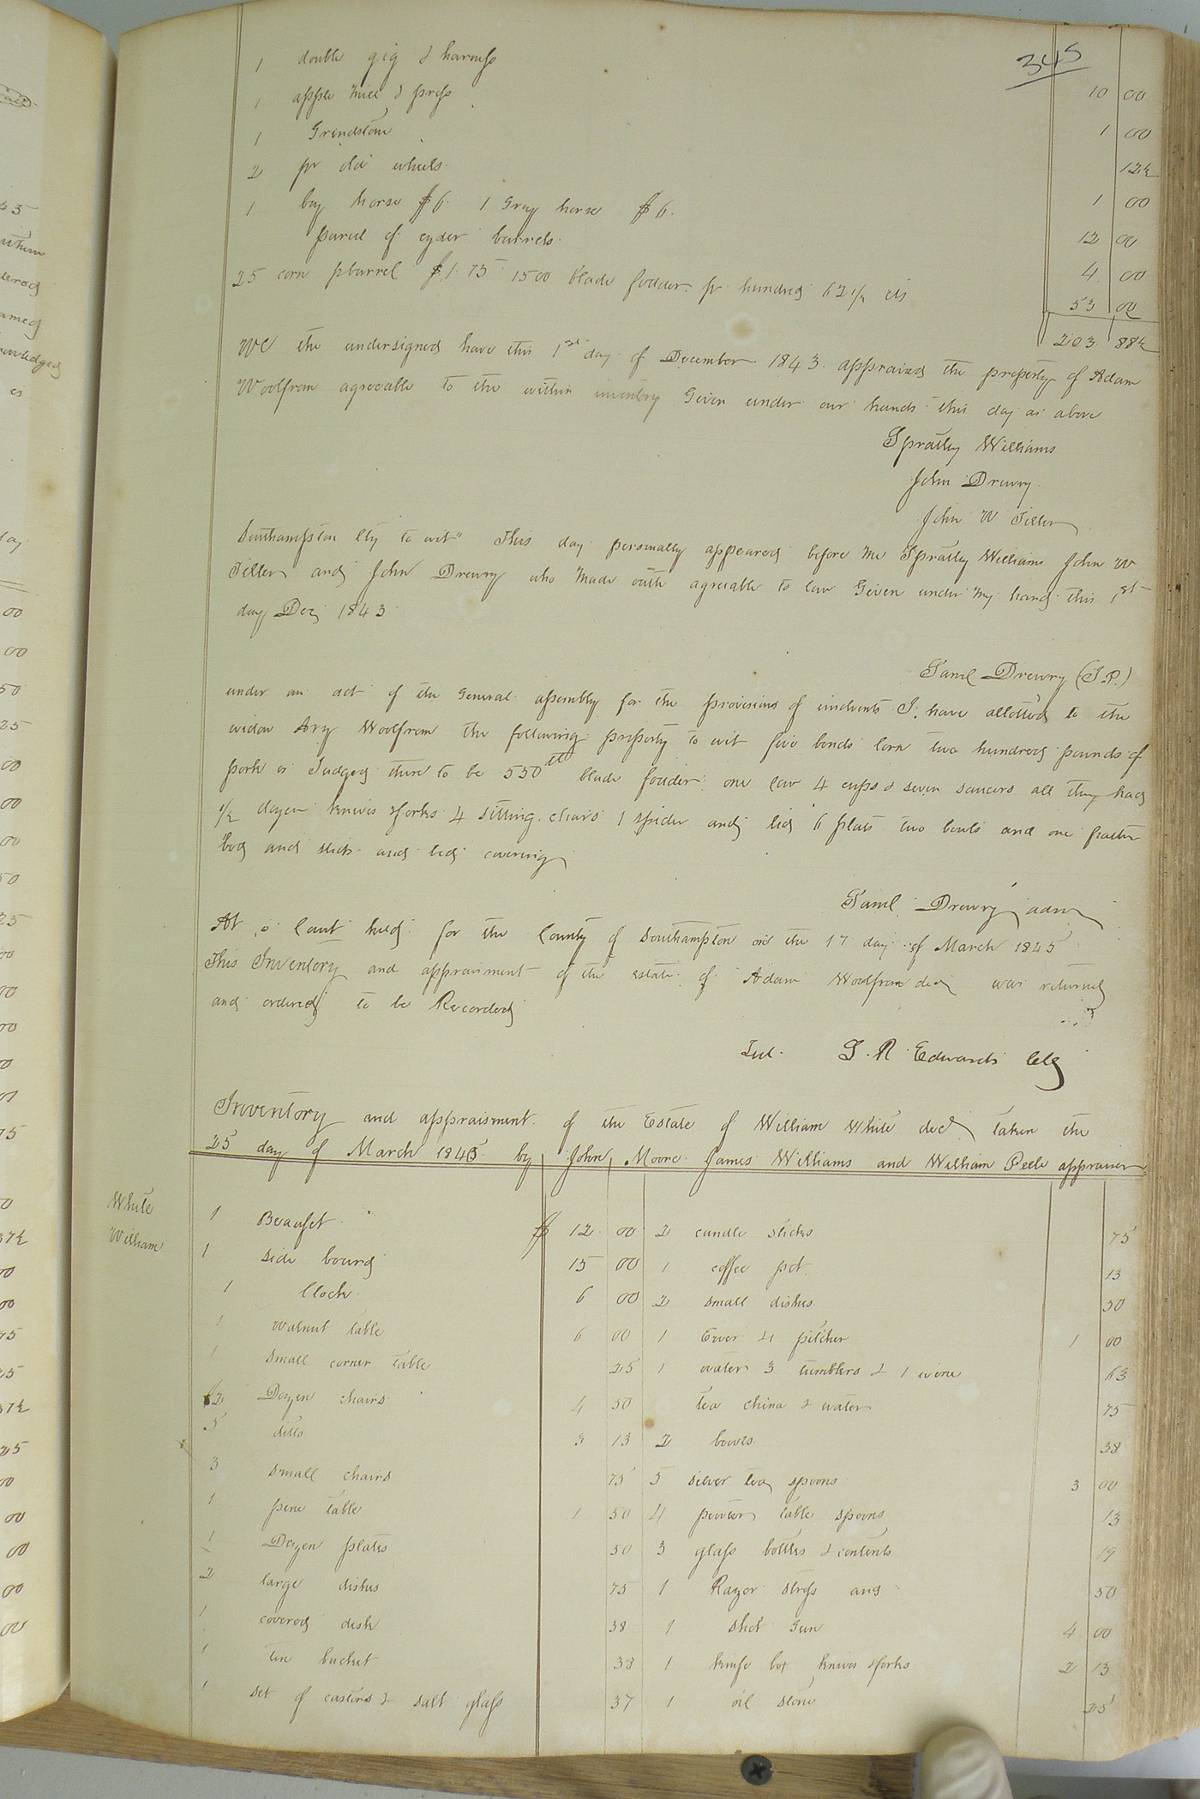 345
1 double gig & harness 10 00
1 apple mill & press 1 00
1 Grindstone 12½
2 pr old wheels 1 00
1 bay horse $6. 1 Gray horse $6. 12 00
parcel of cyder barrels 4 00
25 corn pbarrel $1.75 1500 blade fodder pr hundred 62½ cts 53 00
203 88½
We the undersigned have this 1st day of December 1843 appraised the property of Adam
Woolfrom agreeable to the within inventry Given under our hands this day as above
Spratley Williams
John Drewry
John W Tiller
Southampton Cty to wit" This day personally appeared before me Spratley Williams John W
Tiller and John Drewry who made oath agreeable to law Given under my hand this 1st
day Dec 1843
Saml Drewry (J.P.)
under an act of the General assembly for the provisions of I. have allotted to the
widow Woolfrom the following property to wit five corn two hundred pounds of
pork as Judged there to be 550 blade fodder one 4 cups & seven saucers all they had
½ dozen knives & forks 4 sitting chairs 1 spider and lid 6 plats two bowls and one
bed and and bed covering
Saml Drewry adm
At a Court held for the County of Southampton on the 17 day of March 1845
This Inventory and appraisment of the estate of Adam Woolfrom decd was returned
and ordered to be Recorded
L. R. Edwards Clk
Inventory and appraisment of the Estate of William White decd taken the
25 day of March 1845 by John Moore James Williams and William Peele appraisers
White
William
1 Beaufet $ 12 00 2 candle sticks 75
1 side bourd 15 00 1 coffee pot 13
1 Clock 6 00 2 small dishes 50
1 walnut table 6 00 1 Ewer & pitcher 1 00
1 small corner table 25 1 water 3 tumblers & 1 wine 63
2 Dozen chairs 4 50 tea china & water 75
5 ditto 3 13 2 bowls 38
3 small chairs 75 5 silver tea spoons 3 00
1 pine table 1 50 4 pewter table spoons 13
1 Dozen plates 50 3 glass bottles & contents 19
2 large dishes 75 1 Razor and 50
1 covered dish 38 1 shot Gun 4 00
1 tin bucket 38 1 knife box knives & forks 2 13
1 set of castors & salt glass 37 1 oil stone 25